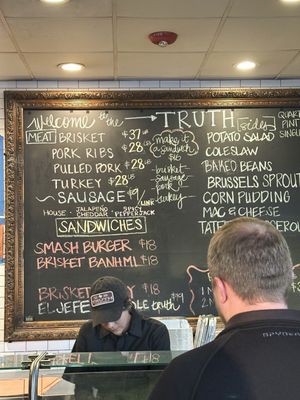 Welcome to the TRUTH
MEAT
BRISKET $37 LB
PORK RIBS $28 LB
PULLED PORK $28 LB
TURKEY $28 LB
SAUSAGE $9/LINK
HOUSE - JALAPEÑO CHEDDAR - SPICY PEPPERJACK
make it a sandwich $16
-brisket
sausage
pork
turkey
SANDWICHES
SMASH BURGER $18
BRISKET BANH MI $18
BRISKE
EL JEFE
OLE TRUTH
$18
Sides
QUART
PINT
SINGL
POTATO SALAD
COLESLAW
BAKED BEANS
BRUSSELS SPROUT
CORN PUDDING
MAC & CHEESE
TATE
SPYDER